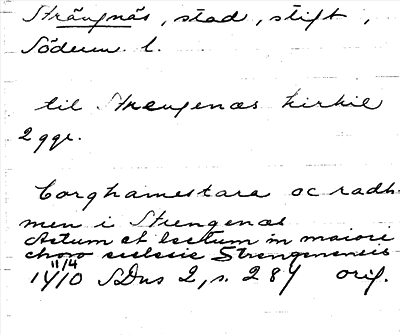 Strängnäs, stad, stift,
Söderm. l.
til Strengenæs kirkie
2 ggr.
Borghamestara oc radh-
men i Strengenæs
Actum et lectum in maiori
choro ecclesie Strengenensis
11/4
1410 SDns 2, s. 284 orig.